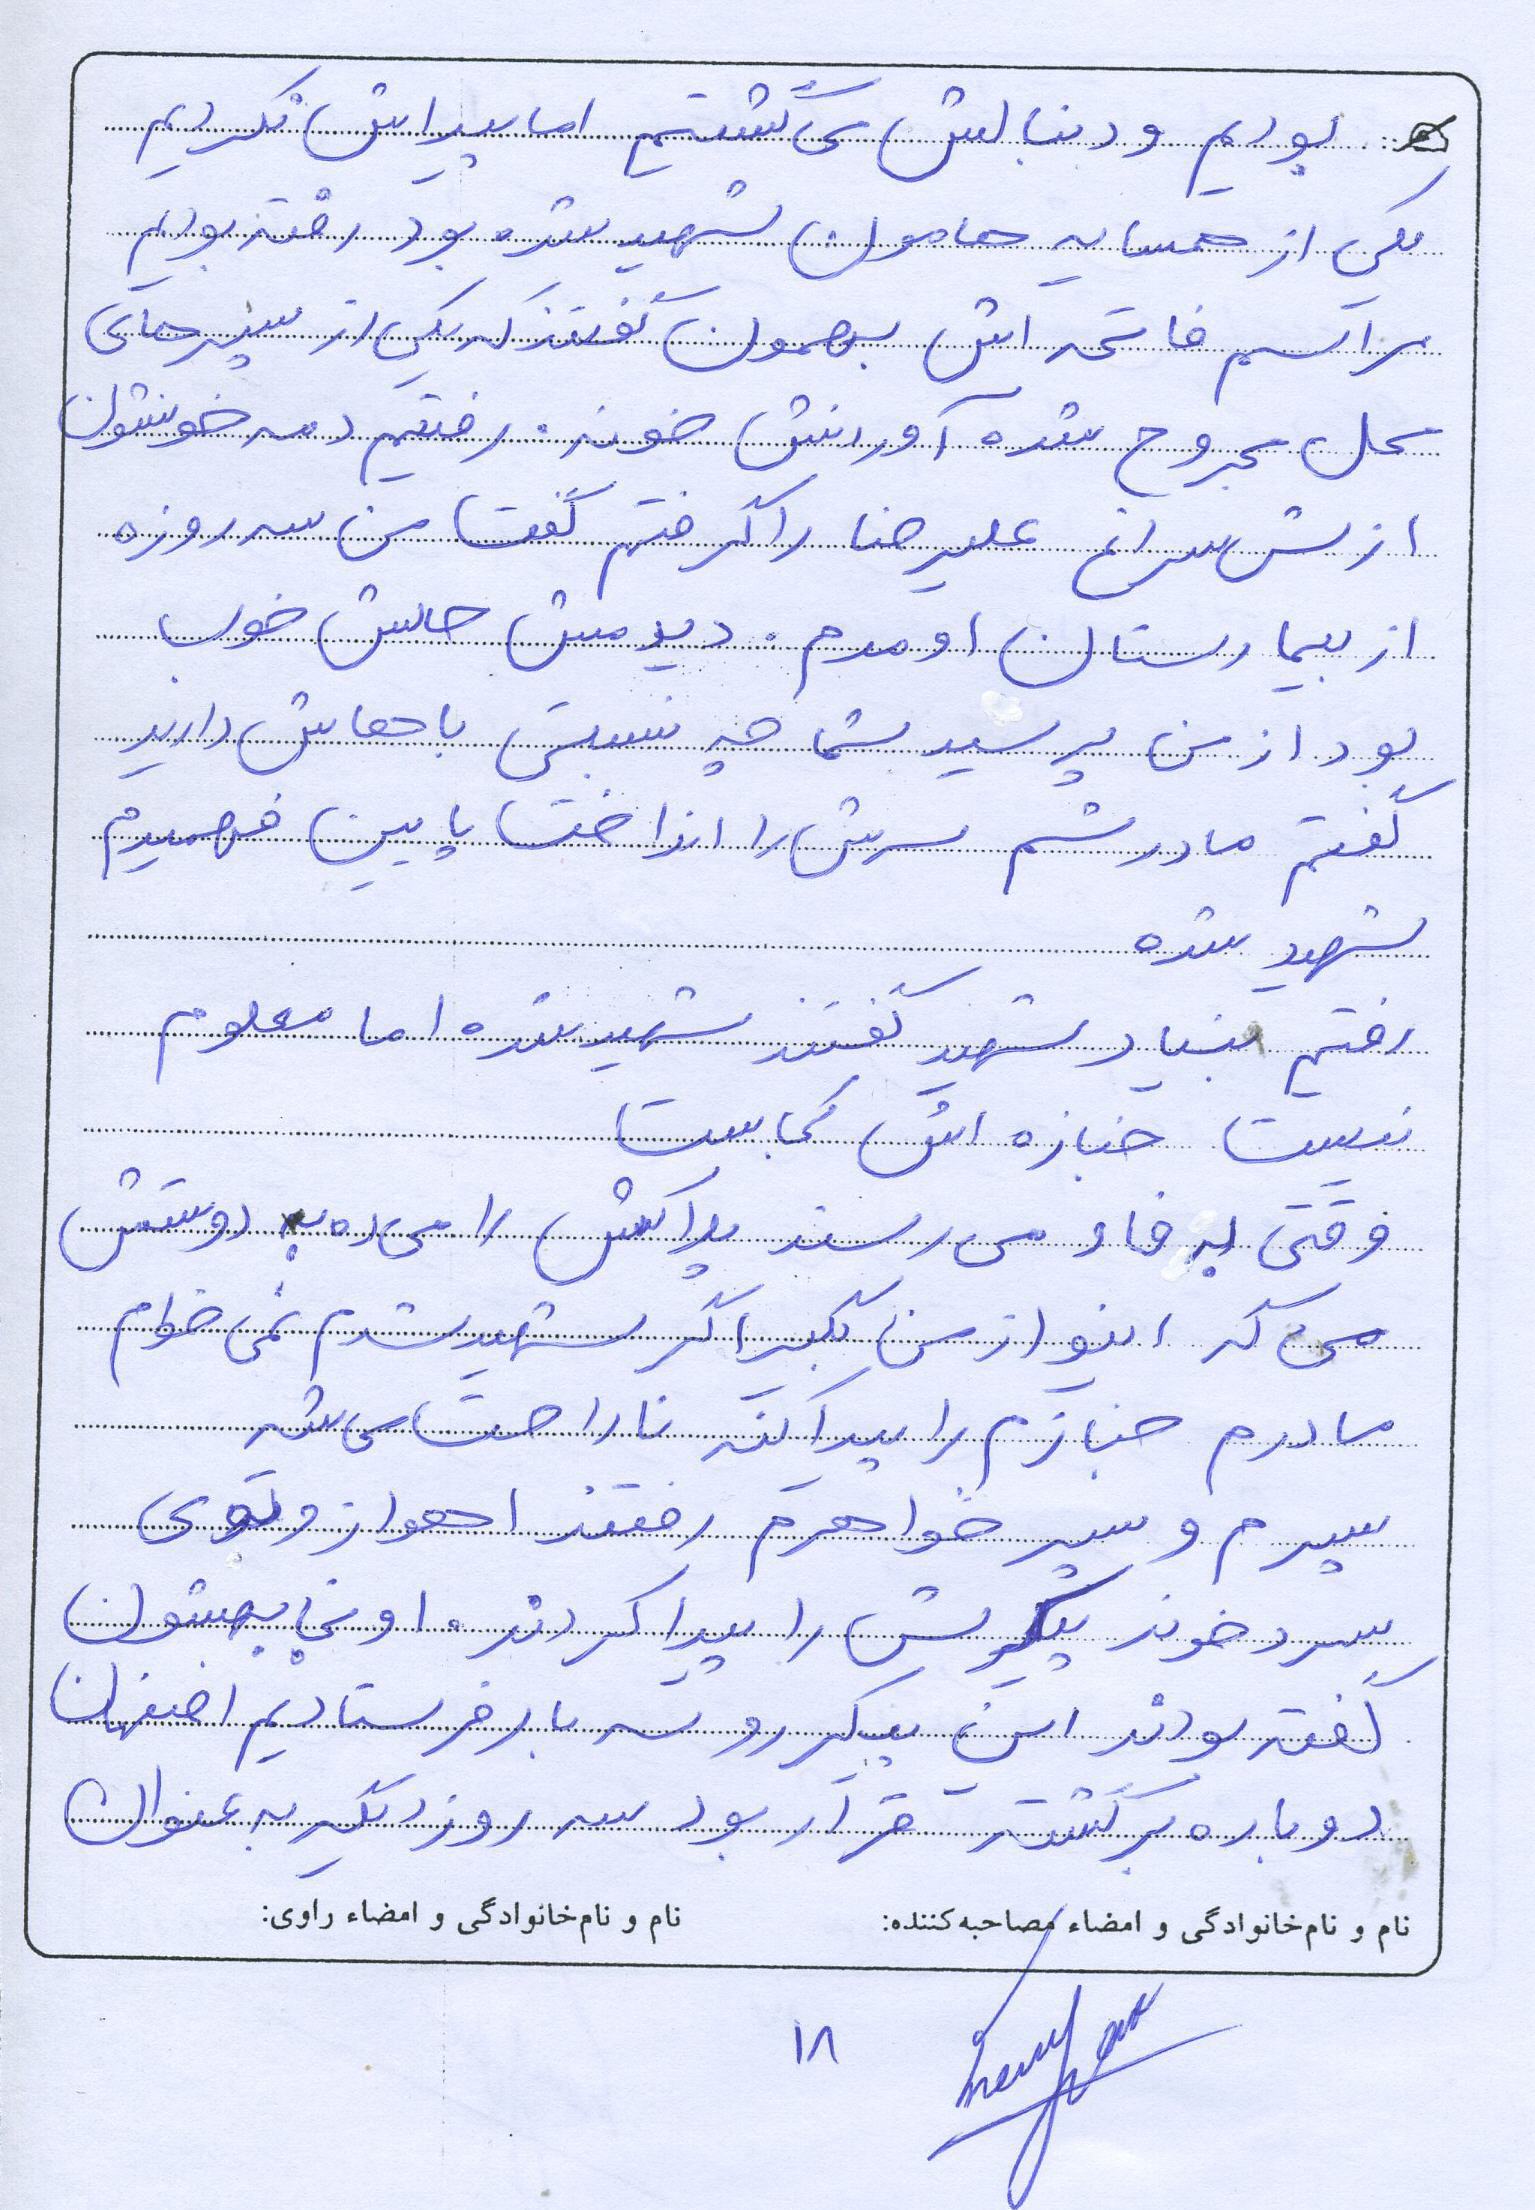 بودیم و دنبالش می گشتیم اما پیدایش نکردیم
یکی از همسایه هامون شهید شده بود رفته بودیم
مراسم فاتحه اش بهمون گفتند که یکی از پسرهای
محل مجروح شده آوردنش خونه. رفتیم دمه خونشون
ازش سراغ علیرضا را گرفتم گفت من سه روزه
از بیمارستان اومدم. دیدمش حالش خوب
بود از من پرسید شما چه نسبتی باهاش دارید
گفتم مادرشم سرش را انداخت پایین فهمیدم
شهید شده
رفتیم بنیاد شهید گفتند شهید شده اما معلوم
نیست جنازه اش کجاست
وقتی به فاو می رسند پلاکش را می ده به دوستش
می گه اینو از من بگیر اگر شهید شدم نمی خوام
مادرم جنازم را پیدا کنه ناراحت می شه
پسرم و پسر خواهرم رفتند اهواز و توی
سردخونه پیکرش را پیدا کردند. اونجا بهشون
گفته بودند این پیکر رو سه بار فرستادیم اصفهان
دوباره برگشته قرار بود سه روز دیگه به عنوان
نام و نام‌خانوادگی و امضاء مصاحبه‌کننده: نام و نام‌خانوادگی و امضاء راوی:
۱۸